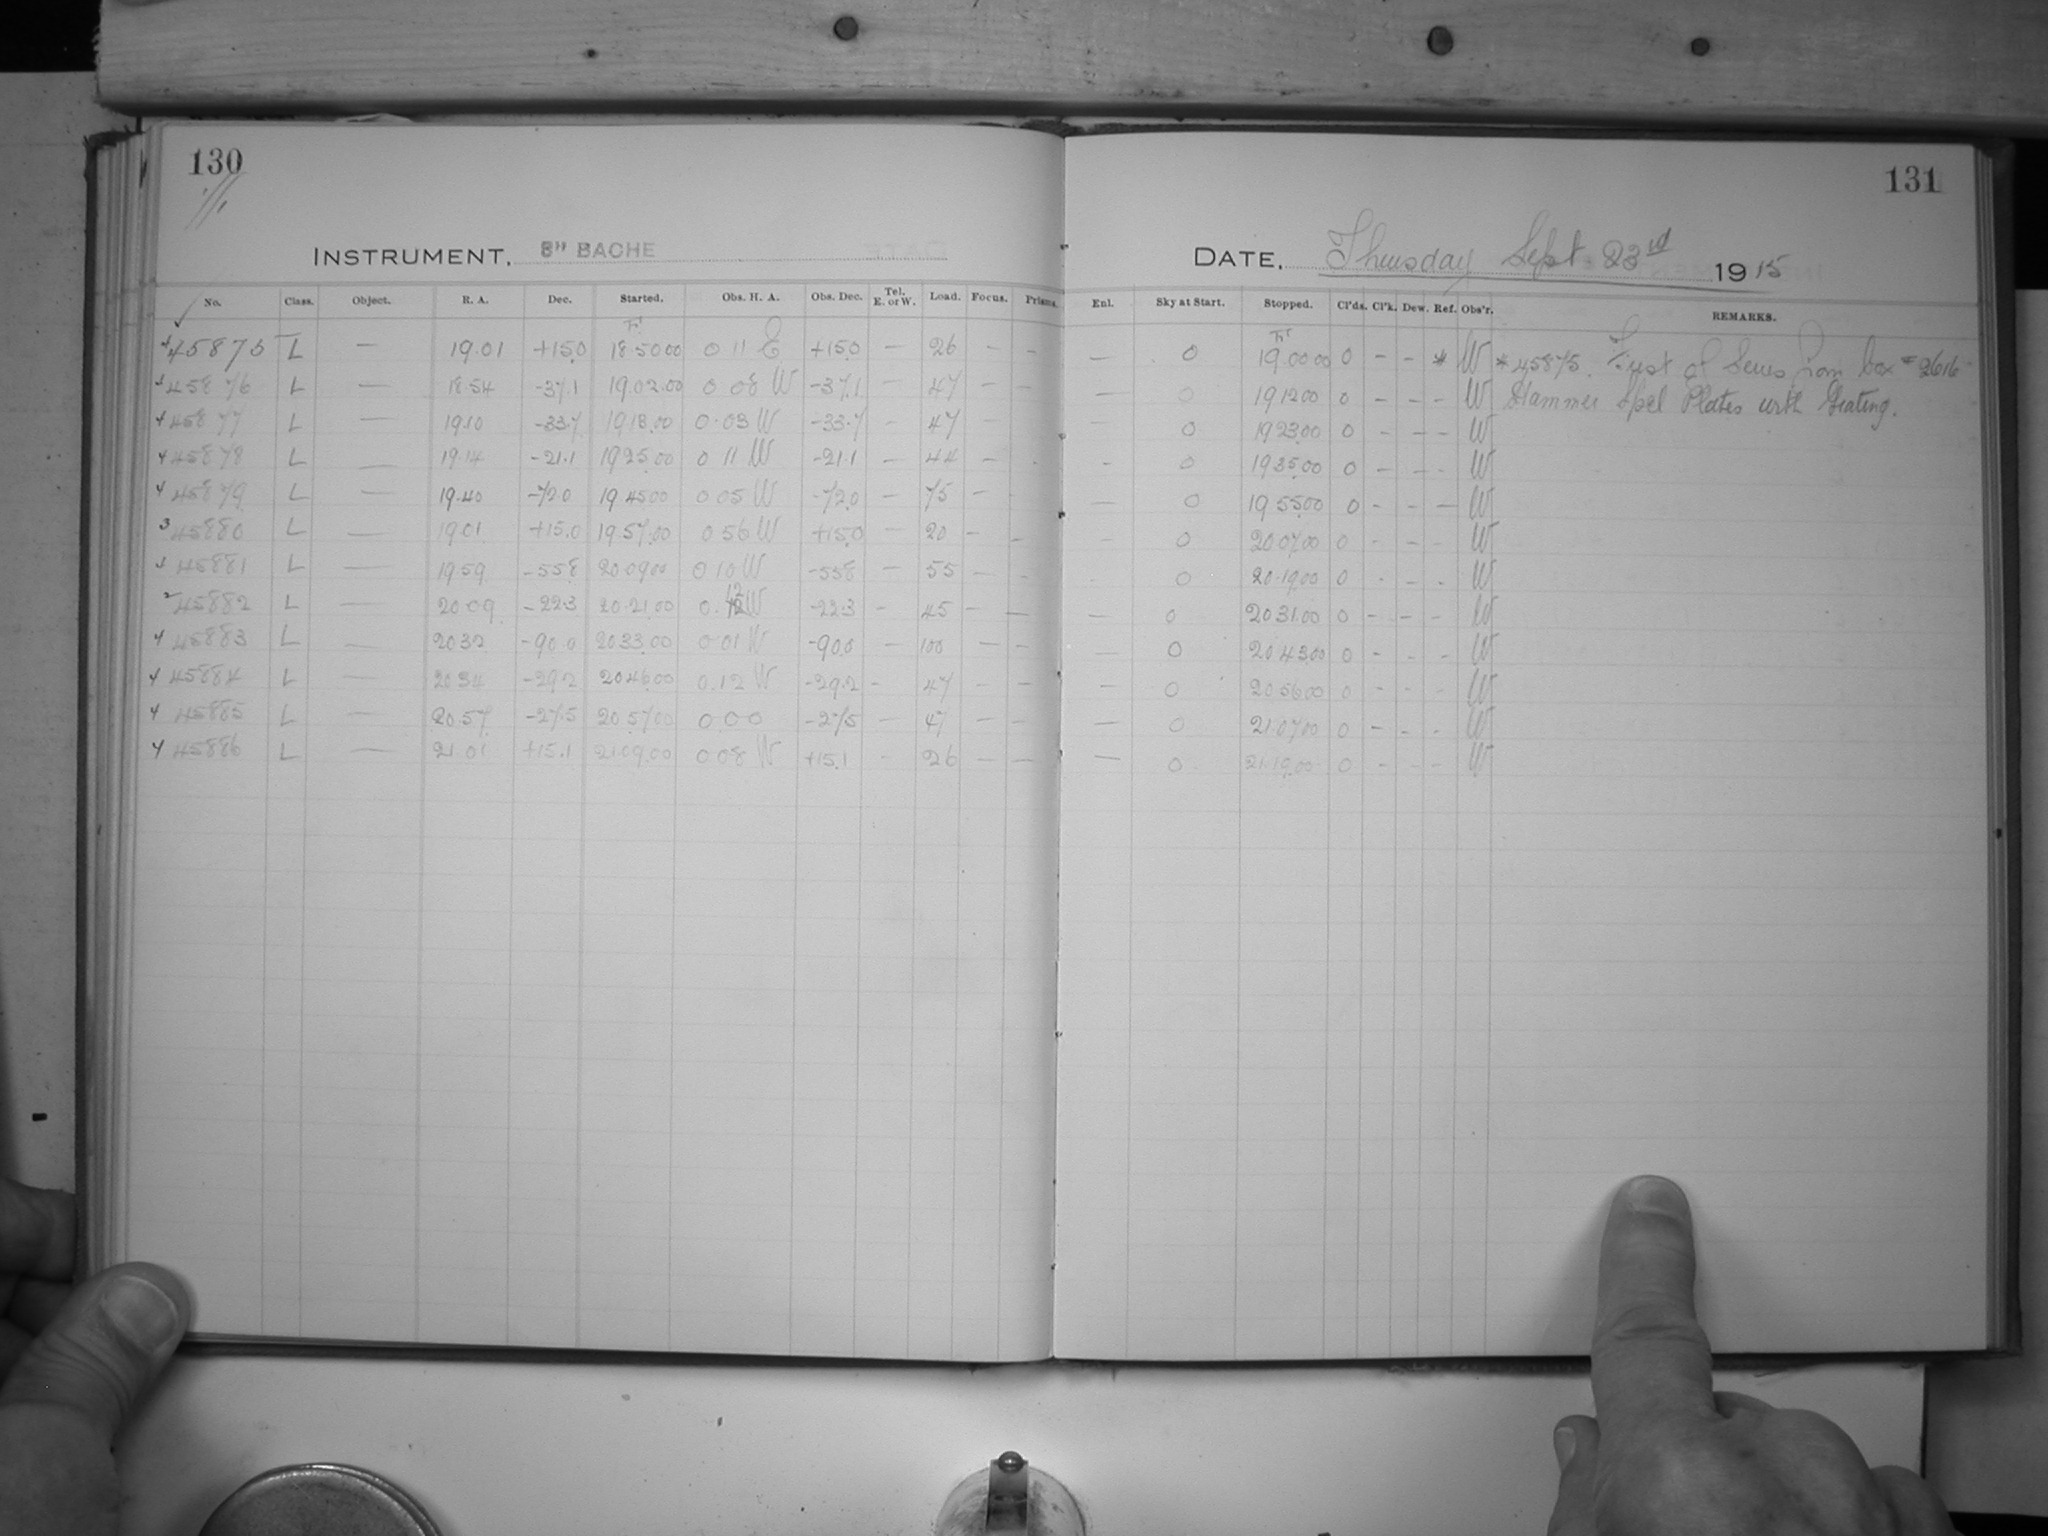 130
131
INSTRUMENT. 8" BACHE
DATE. Thursday Sept 23rd 1915
No. Class. Object. R. A. Dec. Started. Obs. H. A. Obs. Dec. Tel. E. or W. Load. Focus. Prisms. Enl. Sky at Start. Stopped. Cl'ds. Cl'k. Dew. Ref. Obs'r. REMARKS.
4 45875 L — 19.01 +15.0 18.50.00 0 11 E +15.0 — 26 – – — 0 19.00.00 0 – – * W * 45875. First of Series from box # 2616
45876 L — 18.54 -37.1 19.02.00 0 08 W -37.1 – 47 – – — 0 19 12 00 0 – – – W Hammer Spel Plates with Grating.
4 45877 L — 19.10 -33.7 19 18.00 0.03 W -33.7 – 47 – 0 19 23.00 0 – – – W
4 45878 L — 19.14 -21.1 19 25.00 0 11 W -21.1 — 44 – – 0 19 35.00 0 – – – W
4 45879 L — 19.40 -72.0 19 45.00 0 05 W -72.0 – 75 – — 0 19 55.00 0 – – – W
3 45880 L — 19.01 +15.0 19.57.00 0 56 W +15.0 – 20 – – – 0 20 07.00 0 – – – W
3 45881 L — 19.59 -55.8 20.09.00 0 10 W -55.8 – 55 – – 0 20.19.00 0 – – – W
2 45882 L — 20 09 -22.3 20.21.00 0.12 W -22.3 – 45 – — — 0 20 31.00 0 – – – W
4 45883 L — 20 32 -90.0 20 33.00 0 01 W -90.0 – 100 – – — 0 20 43.00 0 – – – W
4 45884 L — 20 34 -29.2 20 46.00 0.12 W -29.2 – 47 – – — 0 20 56.00 0 – – – W
4 45885 L — 20.57 -27.5 20 57.00 0 0 0 -27.5 – 47 – – — 0 21.07.00 0 – – – W
4 45886 L — 21 01 +15.1 21.09.00 0 08 W +15.1 – 26 – — — 0 21.19.00 0 – – – W